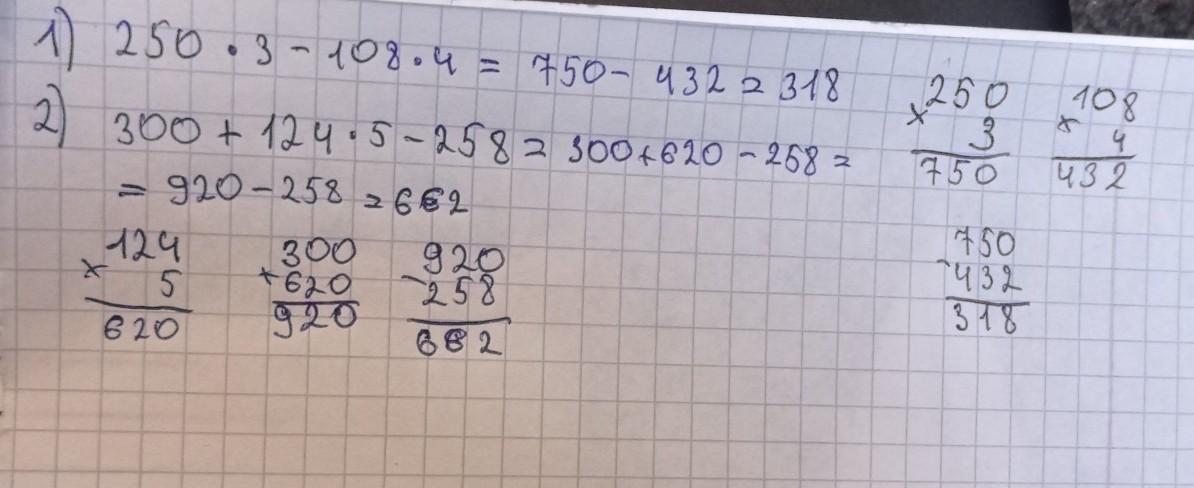 1) 250 · 3 - 108 · 4 = 750 - 432 = 318
2) 300 + 124 · 5 - 258 = 300 + 620 - 258 =
= 920 - 258 = 662
250
× 3
750
108
× 4
432
124
× 5
620
300
+ 620
920
920
- 258
662
750
- 432
318